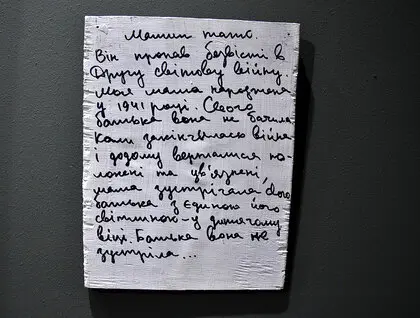 Мамин тато.
Він пропав безвісті в
Другу світову війну.
Моя мама народжена
у 1941 році. Свого
батька вона не бачила
Коли закінчилась війна
і додому вертались по-
лонені та ув'язнені,
мама зустрічала свого
батька з єдиною його
світлиною - у дитячому
віці. Батька вона не
зустріла...